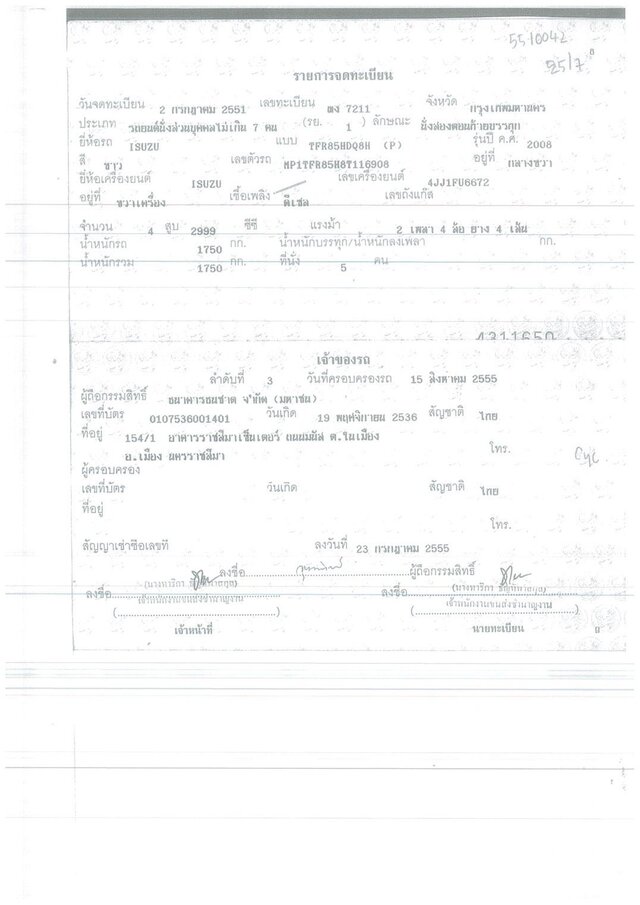 55/0042
25/7
รายการจดทะเบียน
วันจดทะเบียน 2 กรกฎาคม 2551 เลขทะเบียน ฒง 7211 จังหวัด กรุงเทพมหานคร
ประเภท รถยนต์นั่งส่วนบุคคลไม่เกิน 7 คน (รย. 1 ) ลักษณะ นั่งสองตอนท้ายบรรทุก
ยี่ห้อรถ ISUZU แบบ TFR85HDQ8H (P) รุ่นปี ค.ศ. 2008
สี ขาว เลขตัวรถ MP1TFR85H8T116908 อยู่ที่ กลางขวา
ยี่ห้อเครื่องยนต์ ISUZU เลขเครื่องยนต์ 4JJ1FU6672
อยู่ที่ ขวาเครื่อง เชื้อเพลิง ดีเซล เลขถังแก๊ส
จำนวน 4 สูบ 2999 ซีซี แรงม้า 2 เพลา 4 ล้อ ยาง 4 เส้น
น้ำหนักรถ 1750 กก. น้ำหนักบรรทุก/น้ำหนักลงเพลา กก.
น้ำหนักรวม 1750 กก. ที่นั่ง 5 คน
4311650
เจ้าของรถ
ลำดับที่ 3 วันที่ครอบครองรถ 15 สิงหาคม 2555
ผู้ถือกรรมสิทธิ์ ธนาคารธนชาต จำกัด (มหาชน)
เลขที่บัตร 0107536001401 วันเกิด 19 พฤศจิกายน 2536 สัญชาติ ไทย
ที่อยู่ 154/1 อาคารราชสีมาเซ็นเตอร์ ถนนมนัส ต.ในเมือง
อ.เมือง นครราชสีมา โทร.
ผู้ครอบครอง
เลขที่บัตร วันเกิด สัญชาติ ไทย
ที่อยู่
โทร.
สัญญาเช่าซื้อเลขที่ ลงวันที่ 23 กรกฎาคม 2555
ลงชื่อ ผู้ถือกรรมสิทธิ์
ลงชื่อ ลงชื่อ
เจ้าพนักงานขนส่งชำนาญงาน เจ้าพนักงานขนส่งชำนาญงาน
เจ้าหน้าที่ นายทะเบียน